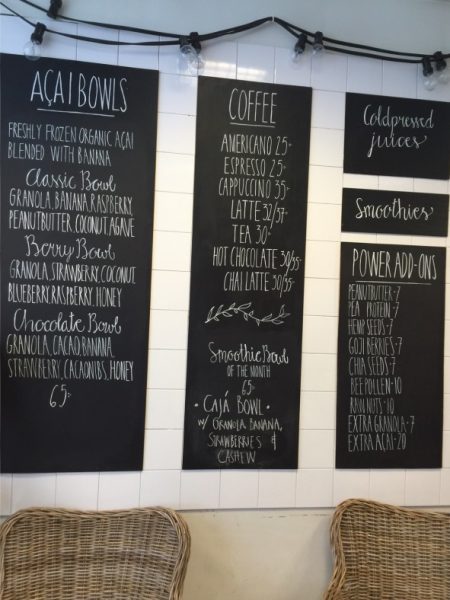 AÇAI BOWLS
FRESHLY FROZEN ORGANIC AÇAI
BLENDED WITH BANANA
Classic Bowl
GRANOLA, BANANA, RASPBERRY,
PEANUTBUTTER, COCONUT, AGAVE
Berry Bowl
GRANOLA, STRAWBERRY, COCONUT
BLUEBERRY, RASPBERRY, HONEY
Chocolate Bowl
GRANOLA, CACAO, BANANA
STRAWBERRY, CACAONIBS, HONEY
65:-
COFFEE
AMERICANO 25:-
ESPRESSO 25:-
CAPPUCCINO 35:-
LATTE 32/37:-
TEA 30:-
HOT CHOCOLATE 30/35:-
CHAI LATTE 30/35:-
Smoothie Bowl
OF THE MONTH
65:-
• CAJÁ BOWL •
W/ GRANOLA, BANANA,
STRAWBERRIES &
CASHEW
Coldpressed
juices
Smoothies
POWER ADD-ONS
PEANUTBUTTER - 7
PEA PROTEIN - 7
HEMP SEEDS - 7
GOJI BERRIES - 7
CHIA SEEDS - 7
BEE POLLEN - 10
RAW NUTS - 10
EXTRA GRANOLA - 7
EXTRA AÇAI - 20